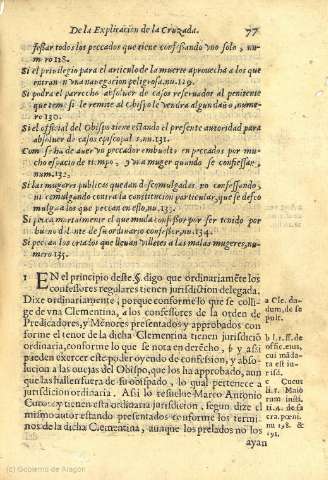 De la Explicacion de la Cruzada. 77
fessar todos los peccados que tiene confessando vno solo, nu-
mero 128.
Si el priuilegio para el articulo de la muerte aprouecha a los que
entran en vna nauegacion peligrosa, nu. 129.
Si podra el parrocho absoluer de casos reseruados al penitente
que teme si le remite al Obispo le vendra algun daño, nume-
ro 130.
Si el official del Obispo tiene estando el presente autoridad para
absoluer de casos episcopales, nu. 131.
Com se ha de auer vn peccador embuelto en peccados por mu-
cho espacio de tiempo, y vna muger quando se confiessan,
num. 132.
Si las mugeres publicas quedan descomulgadas no confessando,
ni comulgando contra la constitucion particular, que se desco
mulga a los que peccan en esso, nu. 133.
Si pecca mortalmente el que muda confessor por ser tenido por
bueno delante de su ordinario confessor, nu. 134.
Si peccan los criados que lleuan villetes a las malas mugeres, nu-
mero 135.
1 EN el principio deste §. digo que ordinariamēte los
confessores regulares tienen jurisdiction delegada.
Dixe ordinariamente, porque conforme lo que se colli-
ge de vna Clementina, a los confessores de la orden de
Predicadores, y Menores presentados y approbados con
forme el tenor de la dicha Clementina tienen jurisdictiō
ordinaria, conforme lo que se nota en derecho, y assi
pueden exercer este poder oyendo de confession, y absol-
uiendo a las ouejas del Obispo, que los ha approbado, aun
que las hallen fuera de su obispado, lo qual pertenece a
jurisdicion ordinaria. Assi lo resuelue Marco Antonio
Cuco, y tienen esta ordinaria jurisdicion, segun dize el
mismo autor estando presentados conforme los termi-
nos de la dicha Clementina, aunque los prelados no los
ayan
a Cle. du-
dum, de se
pult.
b l. 1. ff. de
offic. eius,
cui mādа-
ta est iu-
risd.
c Cucus
li. 1. Maio
rum insti.